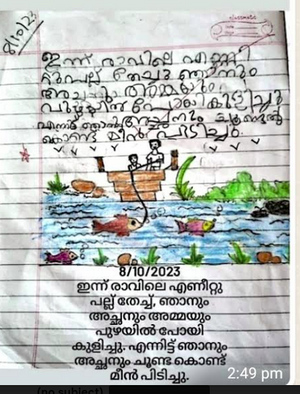 8/10/23
classmate
ഇന്ന് രാവിലെ എണീ
റ്റു പല്ല് തേച്ചു ഞാനും
അച്ഛനും അമ്മയും
പുഴയിൽ പോയി കുളിച്ചു
എന്നിട്ട് ഞാനും അച്ഛനും ചൂണ്ടൽ
കൊണ്ട് മീൻ പിടിച്ചു.
8/10/2023
ഇന്ന് രാവിലെ എണീറ്റു
പല്ല് തേച്ച്, ഞാനും
അച്ഛനും അമ്മയും
പുഴയിൽ പോയി
കുളിച്ചു. എന്നിട്ട് ഞാനും
അച്ഛനും ചൂണ്ട കൊണ്ട്
മീൻ പിടിച്ചു.
2:49 pm
(no subject)